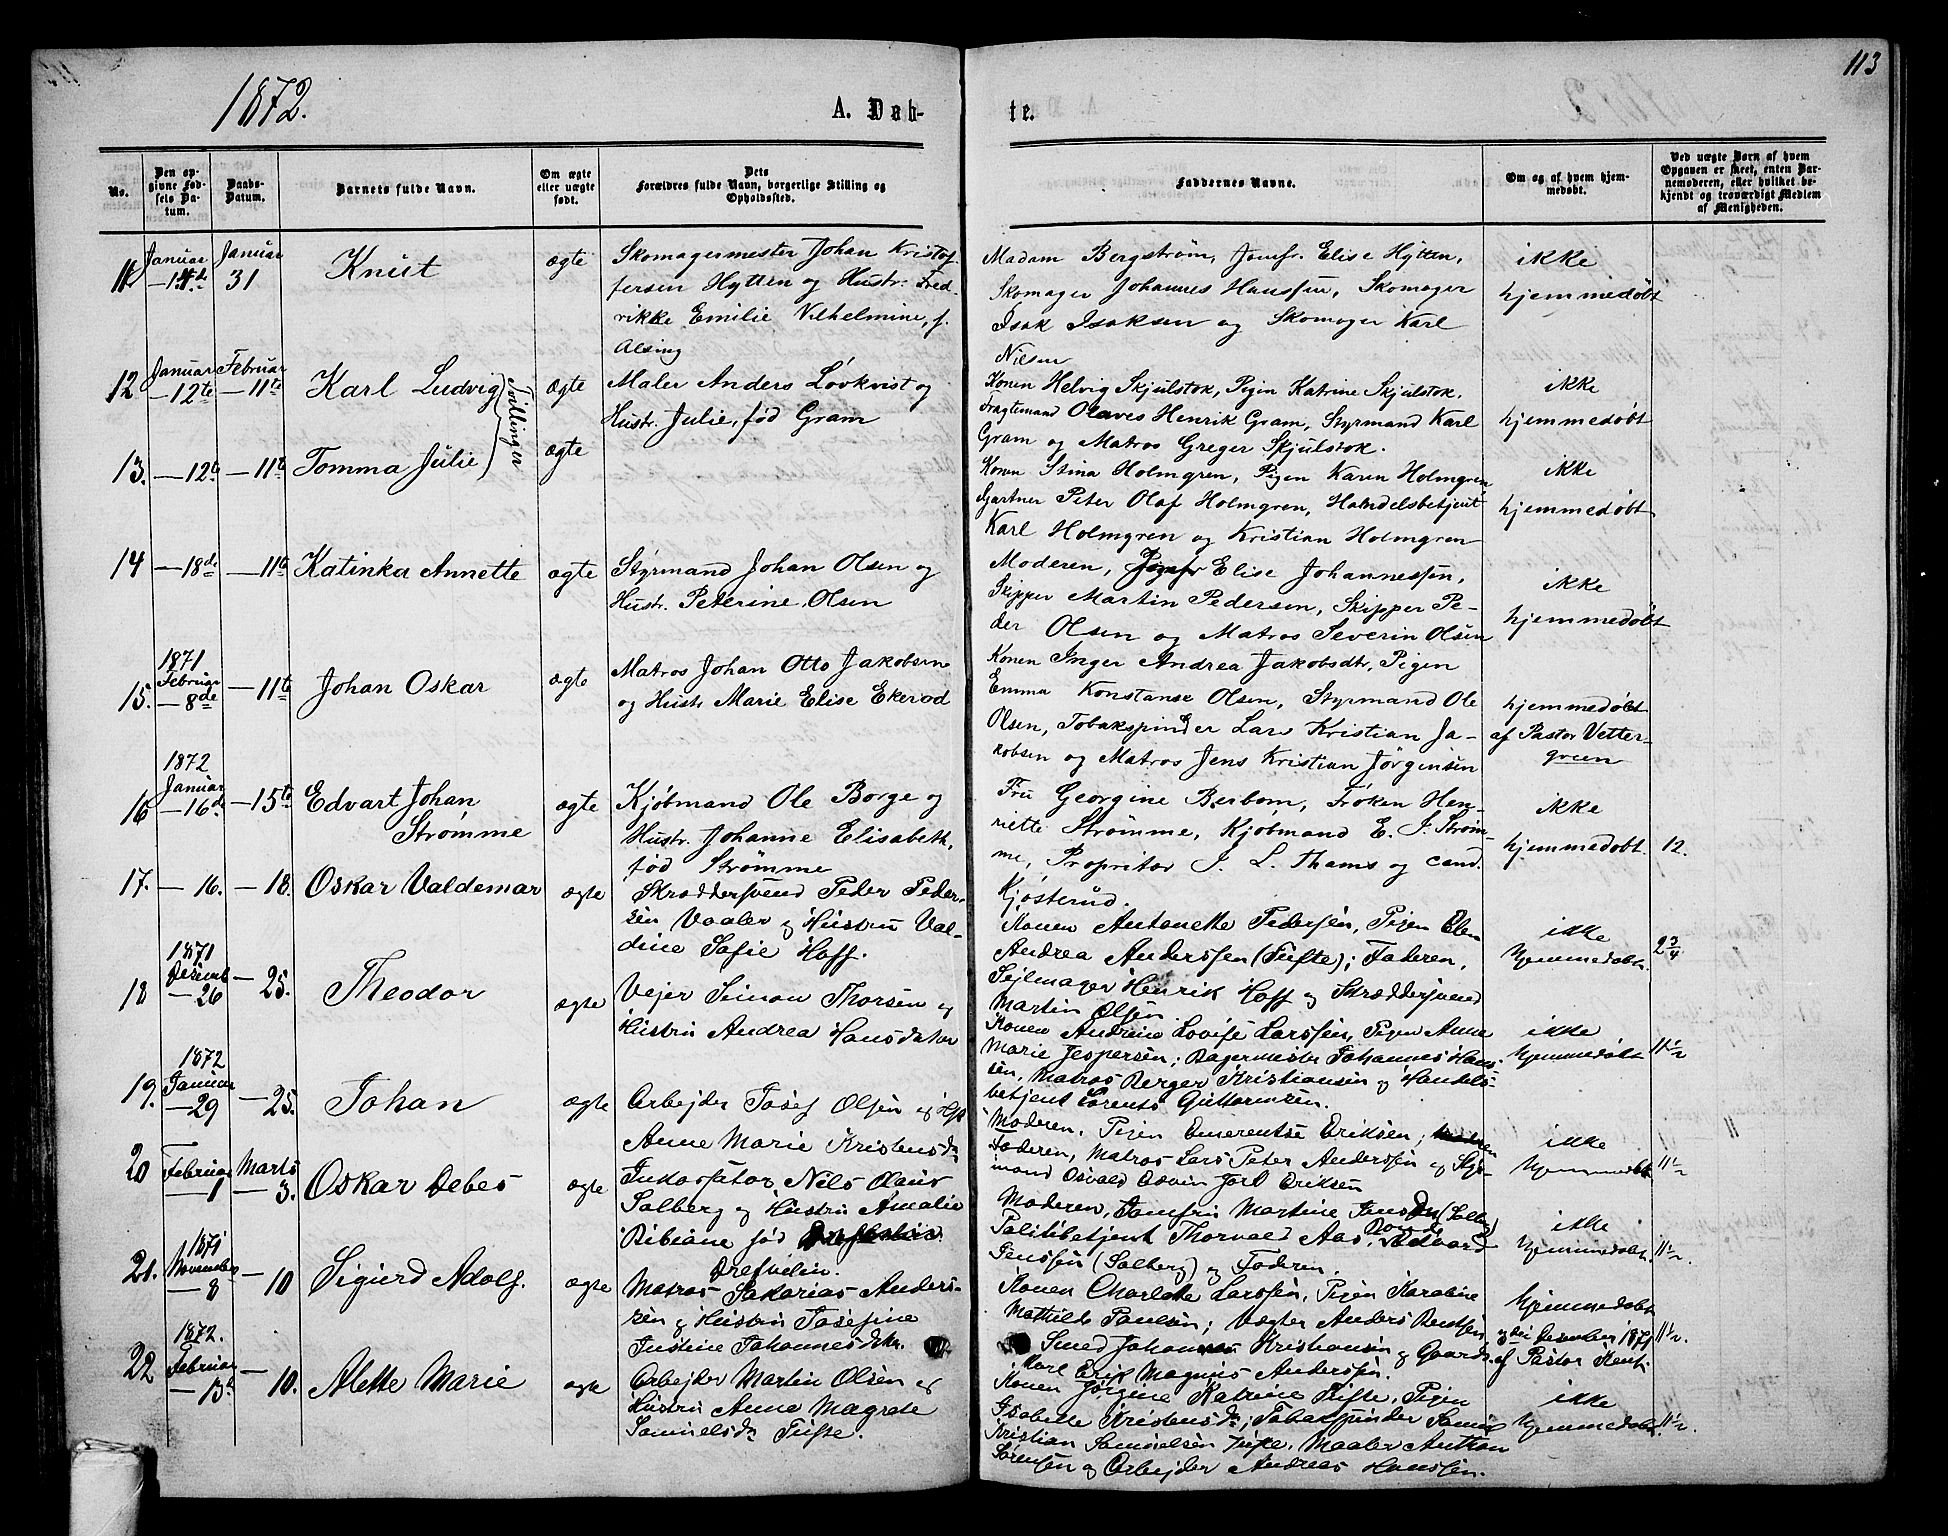 113
1872.
A. Døb-
te.
No.
Den opgivne Fødsels Datum.
Daabs-Datum.
Barnets fulde Navn.
Om ægte eller uægte født.
Dets Forældres fulde Navn, borgerlige Stilling og Opholdssted.
Faddernes Navne.
Om og af hvem hjemmedøbt.
Ved uægte Børn af hvem Opgaven er skeet, enten Barnemoderen, eller hvilket bekjendt og troværdigt Medlem af Menigheden.
11 Januar Januar 31 Knut ægte
Skomagermester Johan Kristof-
fersen Hytten og Hustr: Fred-
rikke Emilie Vilhelmine, f.
Alsing
Madam Bergstrøm, Jomfr. Elise Hytten,
Skomager Johannes Hanssen, Skomager
Isak Isaksen og Skomager Karl
Nilsen
ikke
hjemmedøbt
12 Januar 12te Februar 11te Karl Ludvig Tvillinger ægte
Maler Anders Lövkvist og
Hustr. Julie, fød Gram
Konen Helvig Skjulstok, Pigen Katrine Skjulstok,
Fragtemand Olaves Henrik Gram, Styrmand Karl
Gram og Matros Greger Skjulstok.
ikke
hjemmedøbt
13. 12te 11te Tomma Julie ægte
Konen Stina Holmgren, Pigen Karen Holmgren
Gartner Peter Olaf Holmgren, Handelsbetjent
Karl Holmgren og Kristian Holmgren
ikke
hjemmedøbt
14 18de 11te Katinka Annette ægte
Styrmand Johan Olsen og
Hustr. Peterine Olsen
Moderen, Elise Johannessen,
Skipper Martin Pedersen, Skipper Pe-
der Olsen og Matros Severin Olsen
ikke
hjemmedøbt
15. 1871 Februar 8de 11te Johan Oskar ægte
Matros Johan Otto Jakobsen
og Hustr Marie Elise Ekerød
Konen Inger Andrea Jakobsdtr, Pigen
Emma Konstanse Olsen, Styrmand Ole
Olsen, Tobakspinder Lars Kristian Ja-
kobsen og Matros Jens Kristian Jörgensen
hjemmedøbt
af Pastor Vetter-
green
16 1872 Januar 16de 15te Edvart Johan
Strömme ægte
Kjöbmand Ole Borge og
Hustr. Johanne Elisabeth,
fød Strömme
Fru Georgine Berbom, Fröken Hen-
riette Strömme, Kjöbmand E. J. Ström-
me, Propritær J. L. Thams og cand.
Kjösterud.
ikke
hjemmedøbt. 12.
17. 16. 18. Oskar Valdemar ægte
Skræddersvend Peder Peder-
sen Vaaler og Hustru Val-
dine Sofie Hoff.
Konen Antonette Pedersen, Pigen Elen
Andrea Anderssen (Tufte); Faderen,
Sejlmager Henrik Hoff og Skræddersvend
Martin Olsen.
ikke
hjemmedøbt. 2 3/4
18 1871 Desemb. 26 25. Theodor ægte
Vejer Simon Thorsen og
Hustru Andrea Hansdatter
Konen Andrine Lovise Larssen, Pigen Anne
Marie Jespersen; Bagermester Johannes Hans-
sen, Matros Berger Kristiansen og Handels-
betjent Lorents Guttormsen.
ikke
hjemmedøbt 11 1/2
19. 1872 Januar 29 25. Johan ægte
Arbejder Josef Olsen og Hst
Anne Marie Kristensdr
Moderen, Pigen Emerentse Eriksen;
Faderen, Matros Lars Peter Anderssen og Styr-
mand Osvald Edvin Jarl Eriksen
ikke
hjemmedøbt 11 1/2
20 Februar 1 Marts 3. Oskar Debes ægte
Inkassator Nils Olaus
Solberg og Hustru Amalie
Bibiane fød
Drefvelin.
Moderen, Jomfru Martine Jenssen (Solberg)
Politibetjent Thorvald Aas, Edvard
Jenssen (Solberg) og Faderen.
ikke
hjemmedøbt. 11 1/2.
21. 1871 November 8 10 Sigurd Adolf. ægte
Matros Sakarias Anders-
sen og Hustru Josefine
Justine Johannesdtr.
Konen Charlotte Larssen, Pigen Karoline
Mathilde Paulsen; Vogter Anders Bentsen,
Smed Johannes Kristiansen og Gaards.
Karl Erik Magnus Anderssen.
hjemmedøbt
Desember 1871
af Pastor Kent. 11 1/2.
22 1872. Februar 13de 10. Alette Marie ægte
Arbejder Martin Olsen og
Hustru Anne Magrete
Samuelsdr Tufte.
Konen Jørgine Katrine Tufte, Pigen
Isabelle Kristensdr; Tobakspinder
Kristian Samuelsen Tufte, Maaler Anthon
Sørensen og Arbejder Andreas Hanssen.
ikke
hjemmedøbt. 11 1/2.